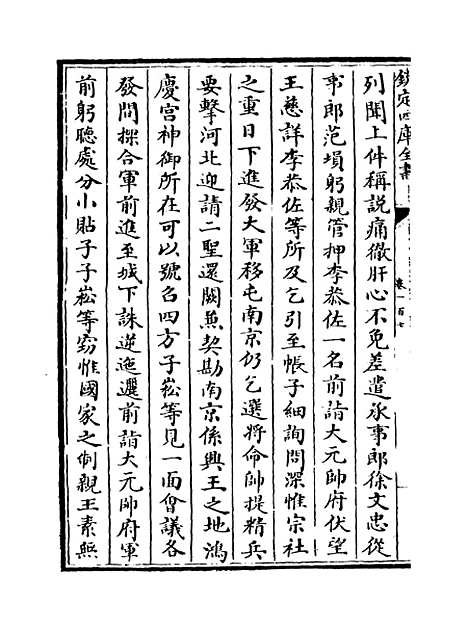 欽定四庫全書
卷一百七
列聞上件稱説痛徹肝心不免差遣承事郎徐文忠從
事郎范塤躬親管押李恭佐一名前詣大元帥府伏望
王慈詳李恭佐等所及乞引至帳子細詢問深惟宗社
之重日下進發大軍移屯南京仍乞選將命帥提精兵
要擊河北迎請二聖還闕無契勘南京係興王之地鴻
慶宮神御所在可以號召四方子崧等見一面會議各
發問探合軍前進至城下誅逆迤邐前詣大元帥府軍
前躬聽處分小貼子子崧等竊惟國家之制親王素無